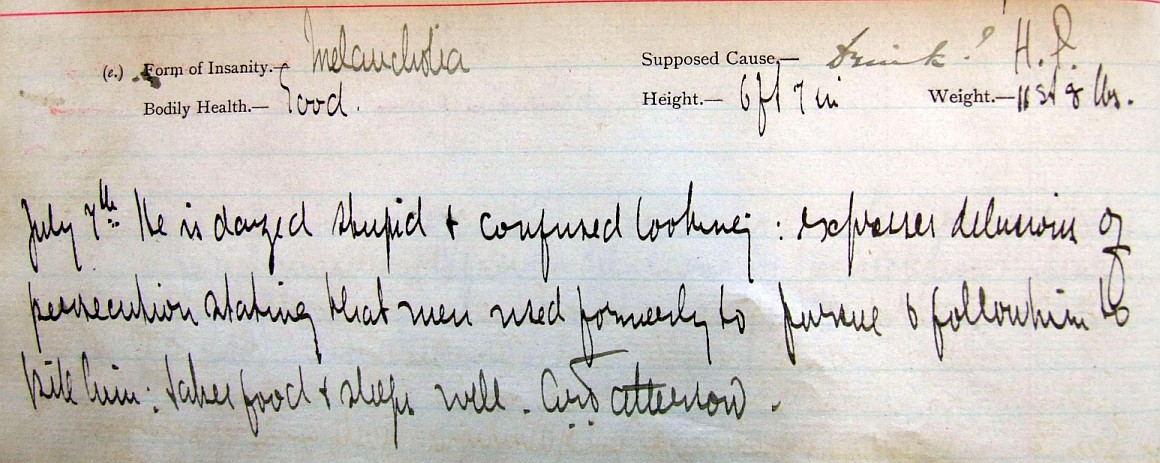 (e.) Form of Insanity.— Melancholia Supposed Cause.— Drink? H. P.
Bodily Health.— Good. Height.— 6 ft 7 in Weight.— 11 st 8 lbs.
July 7th He is dazed stupid & confused looking : expresses delusions of
persecution stating that men used formerly to pursue & follow him to
kill him : takes food & sleeps well.